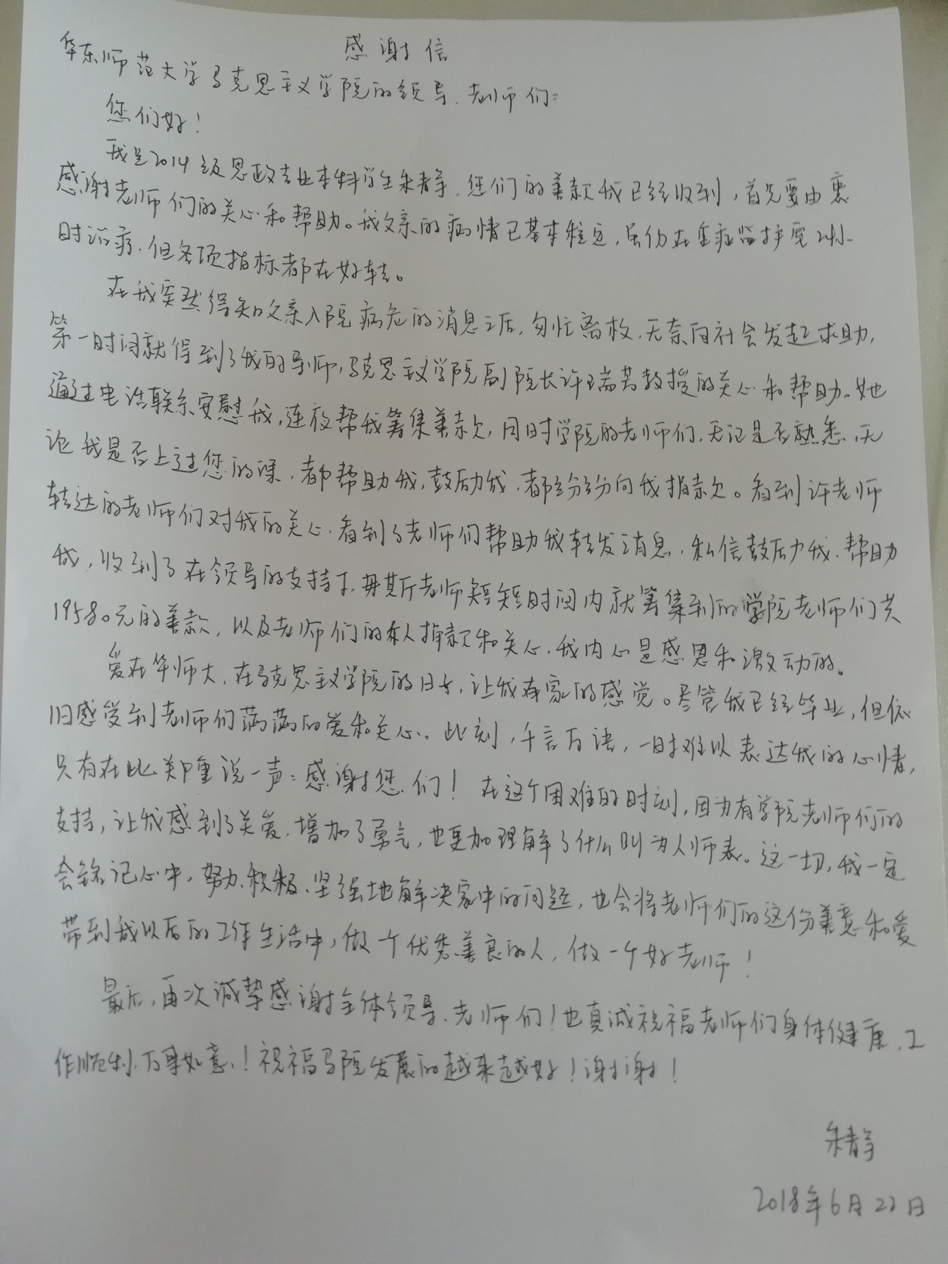 感谢信
华东师范大学马克思主义学院的领导、老师们：
您们好！
我是2014级思政专业本科学生朱静，您们的善款我已经收到，首先要由衷
感谢老师们的关心和帮助。我父亲的病情已基本稳定，虽仍在重症监护室24小
时治疗，但各项指标都在好转。
在我突然得知父亲入院病危的消息之后，匆忙离校，无奈向社会发起求助，
第一时间就得到了我的导师，马克思主义学院副院长许瑞芳教授的关心和帮助。她
通过电话联系安慰我，连夜帮我筹集善款，同时学院的老师们，无论是否熟悉，无
论我是否上过您的课，都帮助我，鼓励我，都纷纷向我捐款。看到许老师
转达的老师们对我的关心，看到了老师们帮助我转发消息，私信鼓励我，帮助
我，收到了在领导的支持下，毋其斤老师短短时间内就筹集到的学院老师们共
19580元的善款，以及老师们的私人捐款和关心，我内心是感恩和激动的。
爱在华师大，在马克思主义学院的日子，让我有家的感觉。尽管我已经毕业，但依
旧感受到老师们满满的爱和关心。此刻，千言万语，一时难以表达我的心情，
只有在此郑重说一声：感谢您们！在这个困难的时刻，因为有学院老师们的
支持，让我感到了关爱，增加了勇气，也更加理解了什么叫为人师表。这一切，我一定
会铭记心中，努力、积极、坚强地解决家中的问题，也会将老师们的这份善意和爱
带到我以后的工作生活中，做一个优秀善良的人，做一个好老师！
最后，再次诚挚感谢全体领导、老师们！也真诚祝福老师们身体健康，工
作顺利，万事如意！祝福马院发展的越来越好！谢谢！
朱静
2018年6月22日